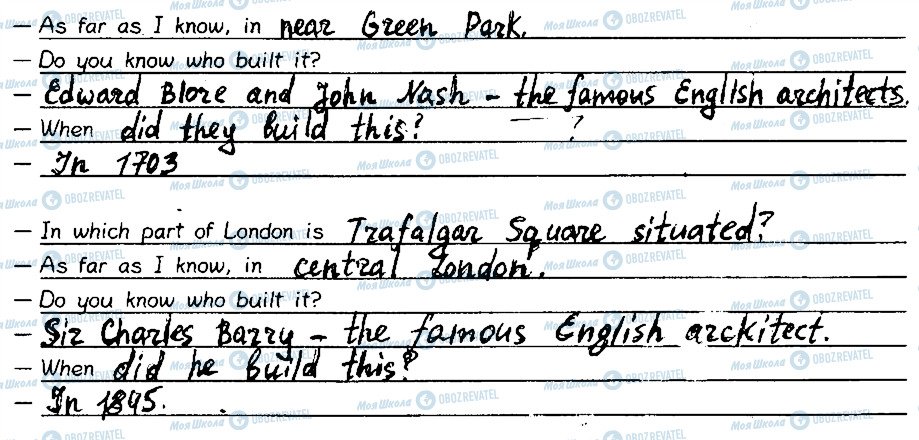 – As far as I know, in near Green Park.
– Do you know who built it?
– Edward Blore and John Nash – the famous English architects.
– When did they build this? ?
– In 1703
– In which part of London is Trafalgar Square situated?
– As far as I know, in central London.
– Do you know who built it?
– Sir Charles Barry – the famous English arckitect.
– When did he build this?
– In 1845.